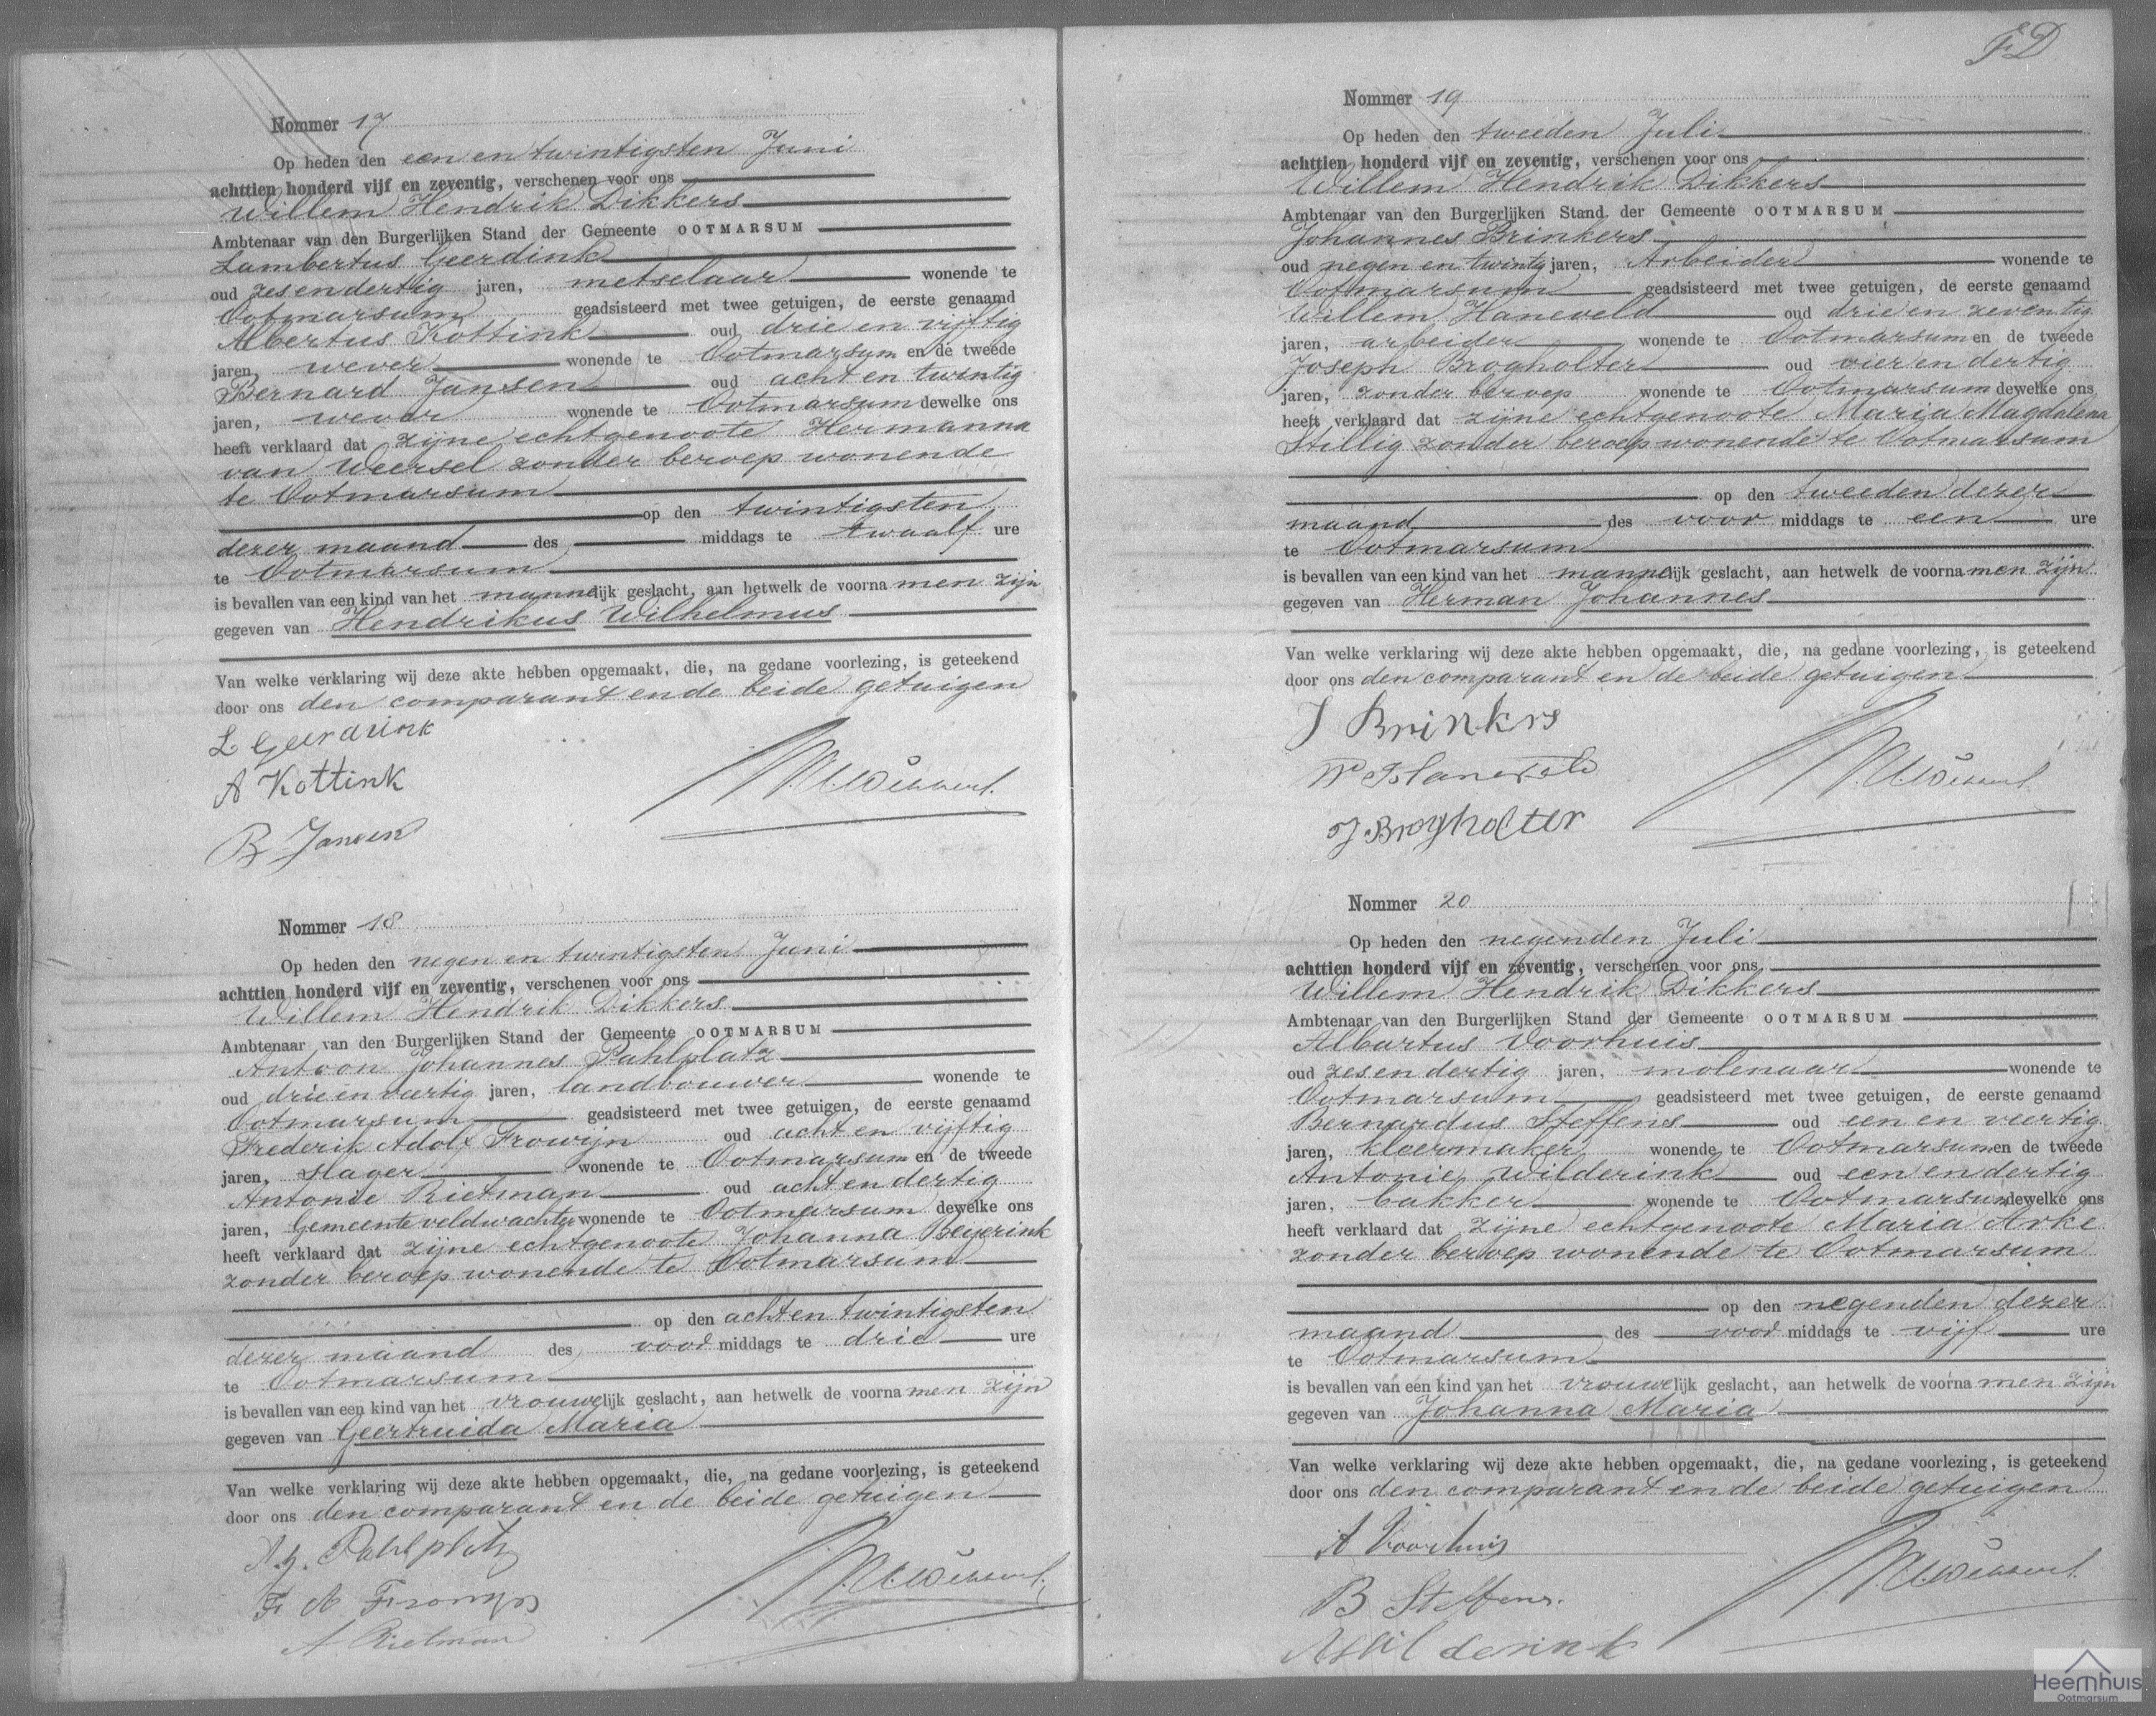 Nommer 17
Op heden den een en twintigsten Juni
achttien honderd vijf en zeventig, verschenen voor ons
Willem Hendrik Dikkers
Ambtenaar van den Burgerlijken Stand der Gemeente OOTMARSUM
Lambertus Geerdink
oud zes en dertig jaren, metselaar wonende te
Ootmarsum geadsisteerd met twee getuigen, de eerste genaamd
Albertus Kottink oud drie en vijftig
jaren, wever wonende te Ootmarsum en de tweede
Bernard Jansen oud acht en twintig
jaren, wever wonende te Ootmarsum dewelke ons
heeft verklaard dat zijne echtgenoote Hermanna
van Weersel zonder beroep wonende
te Ootmarsum
op den twintigsten
dezer maand des middags te twaalf ure
te Ootmarsum
is bevallen van een kind van het mannelijk geslacht, aan hetwelk de voornamen zijn
gegeven van Hendrikus Wilhelmus
Van welke verklaring wij deze akte hebben opgemaakt, die, na gedane voorlezing, is geteekend
door ons den comparant en de beide getuigen
L Geerdink
A Kottink
B Jansen
Nommer 18
Op heden den negen en twintigsten Juni
achttien honderd vijf en zeventig, verschenen voor ons
Willem Hendrik Dikkers
Ambtenaar van den Burgerlijken Stand der Gemeente OOTMARSUM
Antoon Johannes Pahlplatz
oud drie en veertig jaren, landbouwer wonende te
Ootmarsum geadsisteerd met twee getuigen, de eerste genaamd
Frederik Adolf Frowijn oud acht en vijftig
jaren, slager wonende te Ootmarsum en de tweede
Antonie Rietman oud acht en dertig
jaren, Gemeente veldwachter wonende te Ootmarsum dewelke ons
heeft verklaard dat zijne echtgenoote Johanna Beijerink
zonder beroep wonende te Ootmarsum
op den acht en twintigsten
dezer maand des voor middags te drie ure
te Ootmarsum
is bevallen van een kind van het vrouwelijk geslacht, aan hetwelk de voornamen zijn
gegeven van Geertruida Maria
Van welke verklaring wij deze akte hebben opgemaakt, die, na gedane voorlezing, is geteekend
door ons den comparant en de beide getuigen
A.J. Pahlplatz
F A Frowijn
A Rietman
FD
Nommer 19
Op heden den tweeden Juli
achttien honderd vijf en zeventig, verschenen voor ons
Willem Hendrik Dikkers
Ambtenaar van den Burgerlijken Stand der Gemeente OOTMARSUM
Johannes Brinkers
oud negen en twintig jaren, Arbeider wonende te
Ootmarsum geadsisteerd met twee getuigen, de eerste genaamd
Willem Haneveld oud drie en zeventig
jaren, arbeider wonende te Ootmarsum en de tweede
Joseph Brogholter oud vier en dertig
jaren, zonder beroep wonende te Ootmarsum dewelke ons
heeft verklaard dat zijne echtgenoote Maria Magdalena
Stillig zonder beroep wonende te Ootmarsum
op den tweeden dezer
maand des voor middags te een ure
te Ootmarsum
is bevallen van een kind van het mannelijk geslacht, aan hetwelk de voornamen zijn
gegeven van Herman Johannes
Van welke verklaring wij deze akte hebben opgemaakt, die, na gedane voorlezing, is geteekend
door ons den comparant en de beide getuigen
J Brinkrs
W Haneveld
J Brogholter
Nommer 20
Op heden den negenden Juli
achttien honderd vijf en zeventig, verschenen voor ons
Willem Hendrik Dikkers
Ambtenaar van den Burgerlijken Stand der Gemeente OOTMARSUM
Albertus Voorhuis
oud zes en dertig jaren, molenaar wonende te
Ootmarsum geadsisteerd met twee getuigen, de eerste genaamd
Bernardus Steffens oud een en veertig
jaren, kleermaker wonende te Ootmarsum en de tweede
Antonie Wilderink oud een en dertig
jaren, bakker wonende te Ootmarsum dewelke ons
heeft verklaard dat zijne echtgenoote Maria Arke
zonder beroep wonende te Ootmarsum
op den negenden dezer
maand des voor middags te vijf ure
te Ootmarsum
is bevallen van een kind van het vrouwelijk geslacht, aan hetwelk de voornamen zijn
gegeven van Johanna Maria
Van welke verklaring wij deze akte hebben opgemaakt, die, na gedane voorlezing, is geteekend
door ons den comparant en de beide getuigen
A Voorhuis
B Steffens
A Wilderink
Heemhuis
Ootmarsum